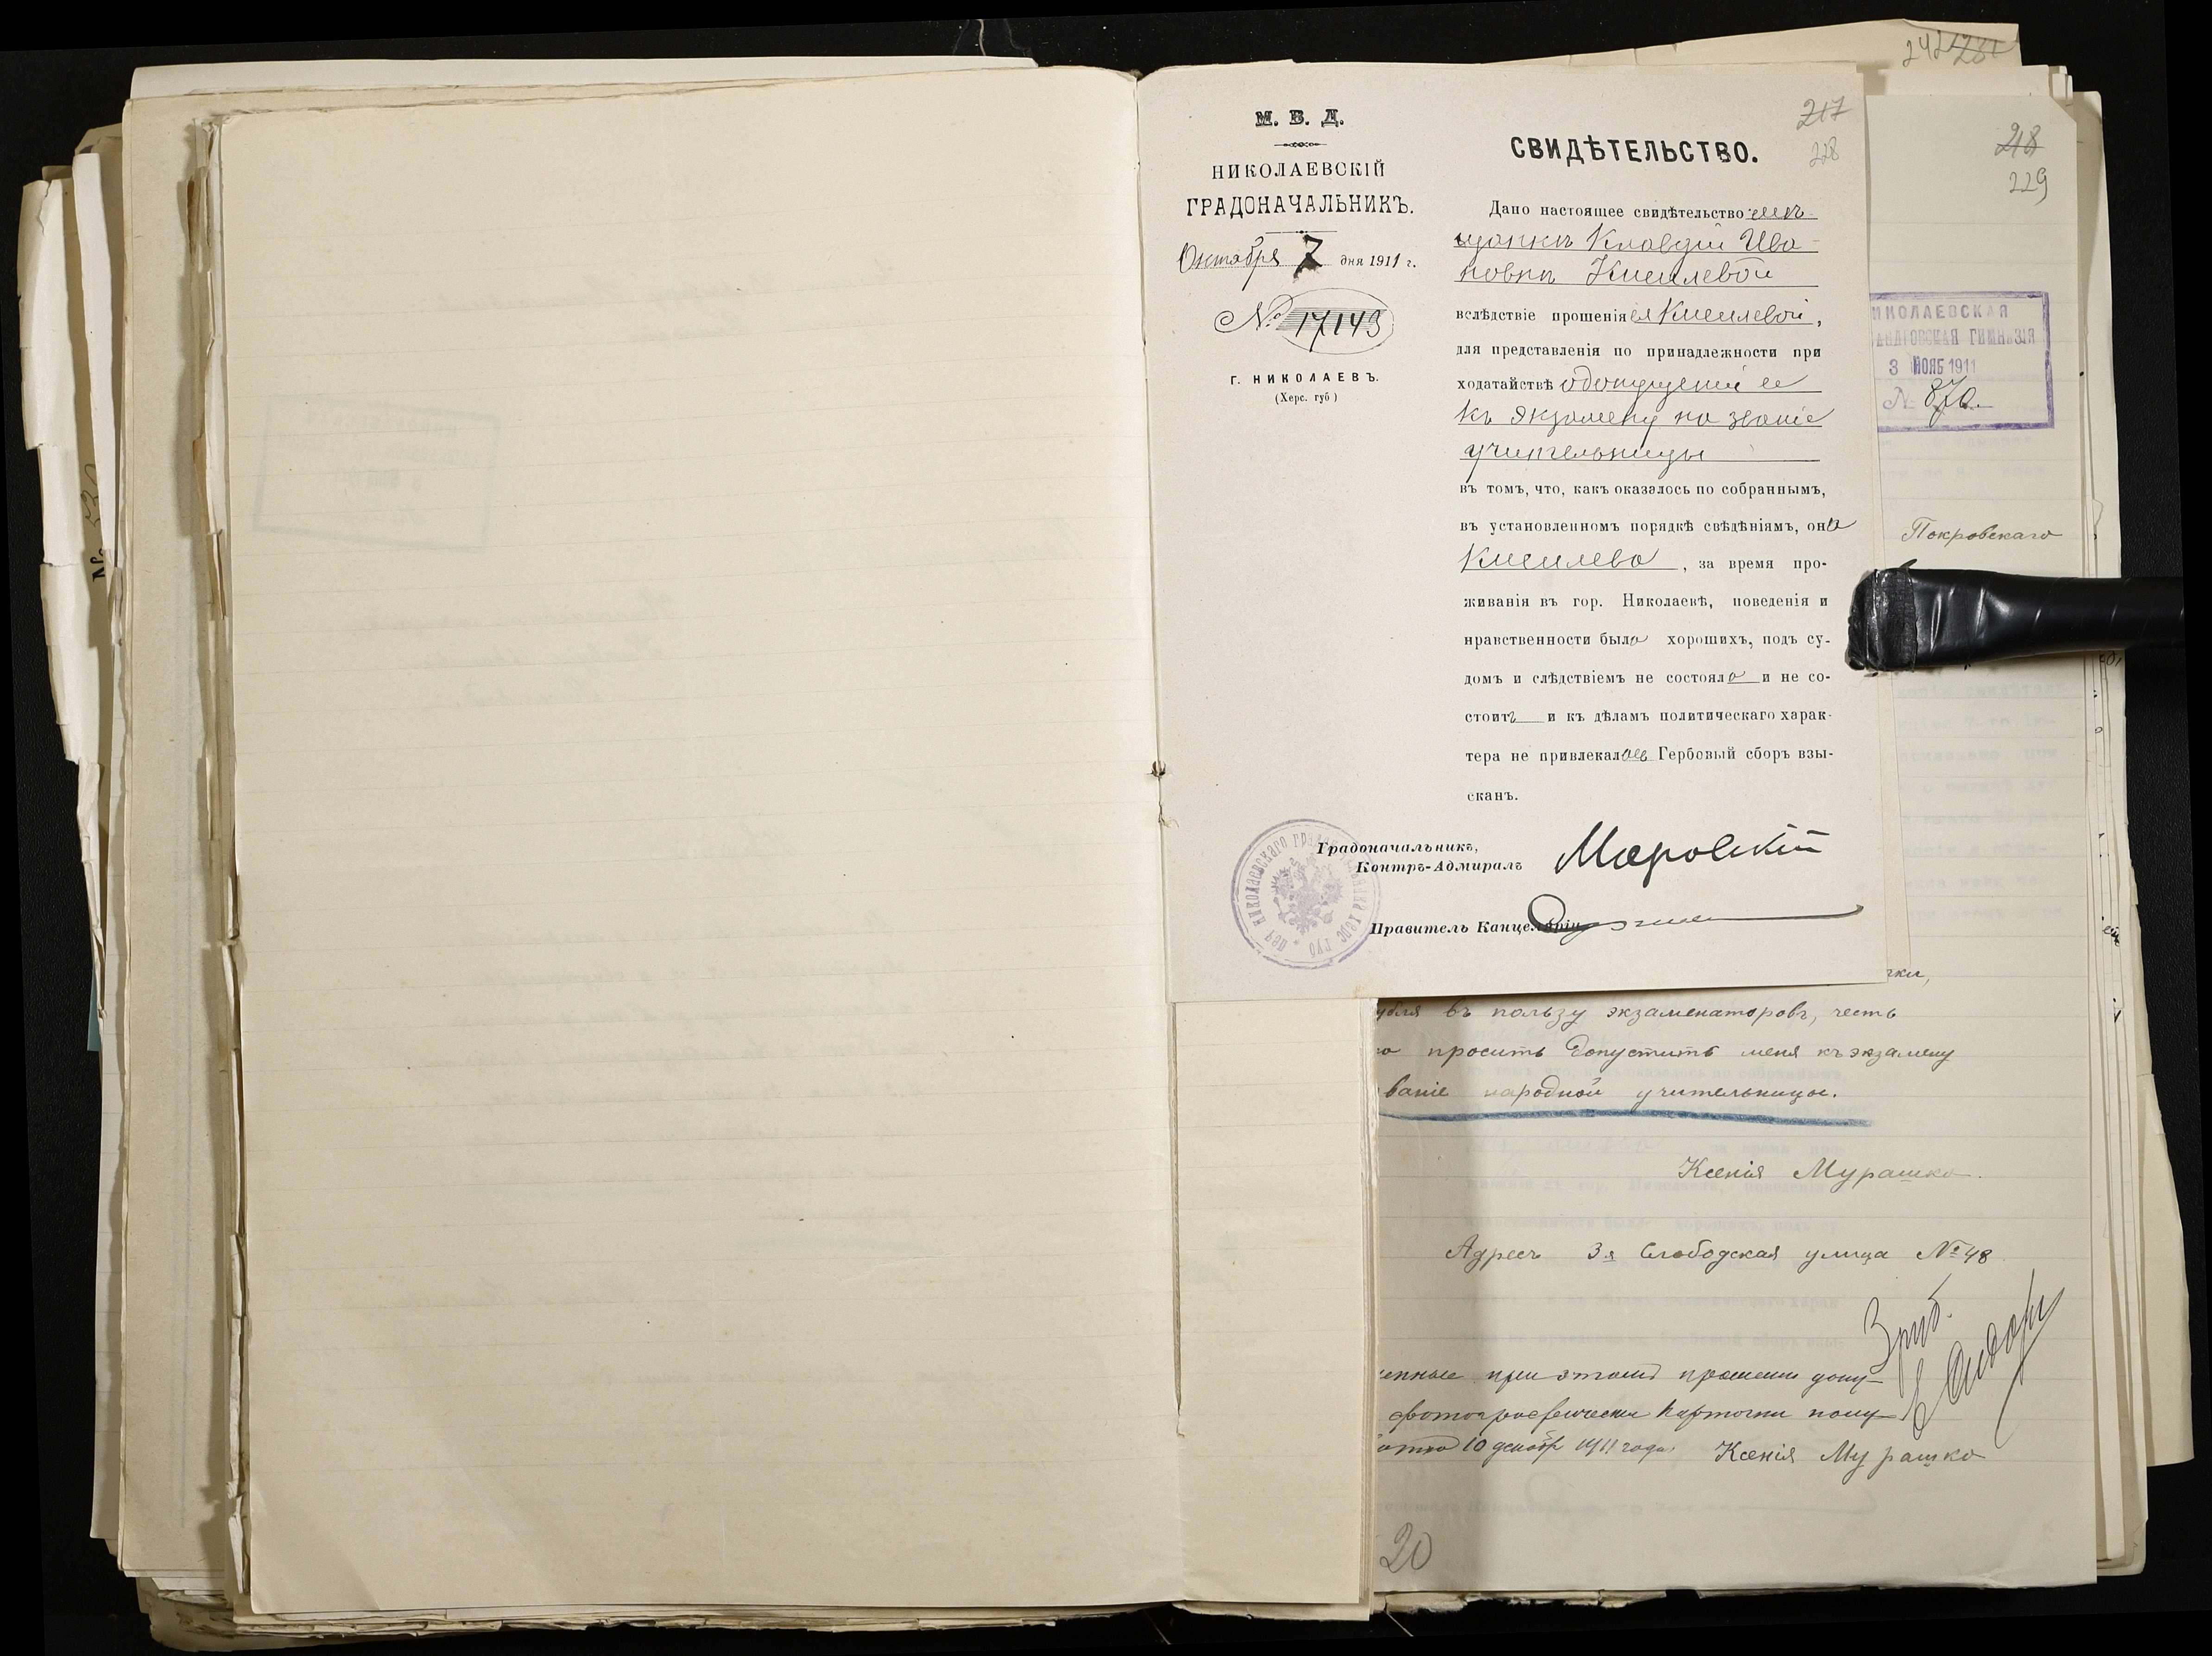 М. В. Д.
НИКОЛАЕВСКІЙ
ГРАДОНАЧАЛЬНИКЪ.
Октября 7 дня 1911 г.
№ 17143
Г. НИКОЛАЕВЪ.
(Херс. губ)
217
228
СВИДѢТЕЛЬСТВО.
Дано настоящее свидѣтельство мѣ-
щанкѣ Клавдіи Ива-
новнѣ Киселевой
вслѣдствіе прошенія ея Киселевой,
для представленія по принадлежности при
ходатайствѣ о допущеніи ее
къ экзамену на званіе
учительницы
въ томъ, что, какъ оказалось по собраннымъ,
въ установленномъ порядкѣ свѣдѣніямъ, она
Киселева, за время про-
живанія въ гор. Николаевѣ, поведенія и
нравственности была хорошихъ, подъ су-
домъ и слѣдствіемъ не состояла и не со-
стоитъ и къ дѣламъ политическаго харак-
тера не привлекалась Гербовый сборъ взы-
сканъ.
Градоначальникъ,
Контръ-Адмиралъ
Правитель Канцеляріи
ПЕЧ НИКОЛАЕВСКАГО ГРАДОНАЧАЛЬНИКА ХЕРС. ГУБ
242 231
218
229
НИКОЛАЕВСКАЯ
ГИМНАЗІЯ
3 НОЯБ 1911
№ 870
Покровскаго
чки,
убля въ пользу экзаменаторовъ, честь
просить допустить меня къ экзамену
званіе народной учительницы.
Ксенія Мурашко.
Адресъ 3я Слободская улица № 48
3 руб.
енные при этомъ прошеніи доку-
фотографически карточки полу-
10 декабр 1911 года. Ксенія Мурашко
20